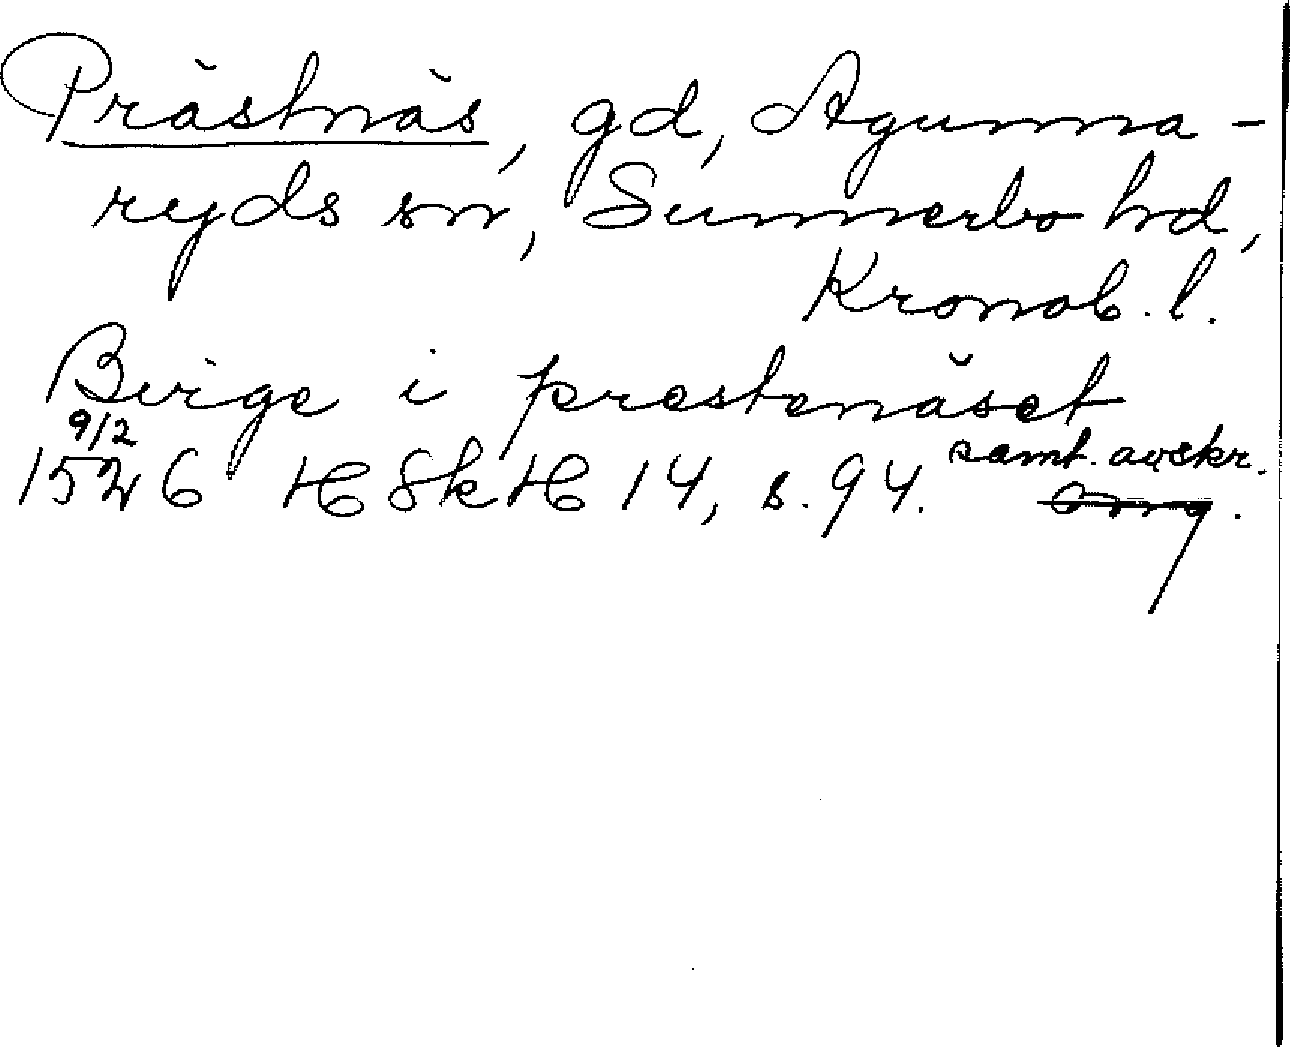 Prästnäs, gd, Agunna-
ryds sn, Sunnerbo hd,
Kronob. l.
Birge i prestenäset
9/2
1526 HSkH 14, s. 94. samt. avskr.